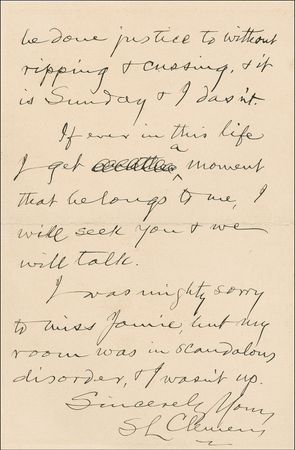 be done justice to without
ripping & cussing, & it
is Sunday & I dasn't.
If ever in this life
I get a moment
that belongs to me, I
will seek you & we
will talk.
I was mighty sorry
to miss Jamie, but my
room was in scandalous
disorder, & I wasn't up.
Sincerely Yours
SL Clemens